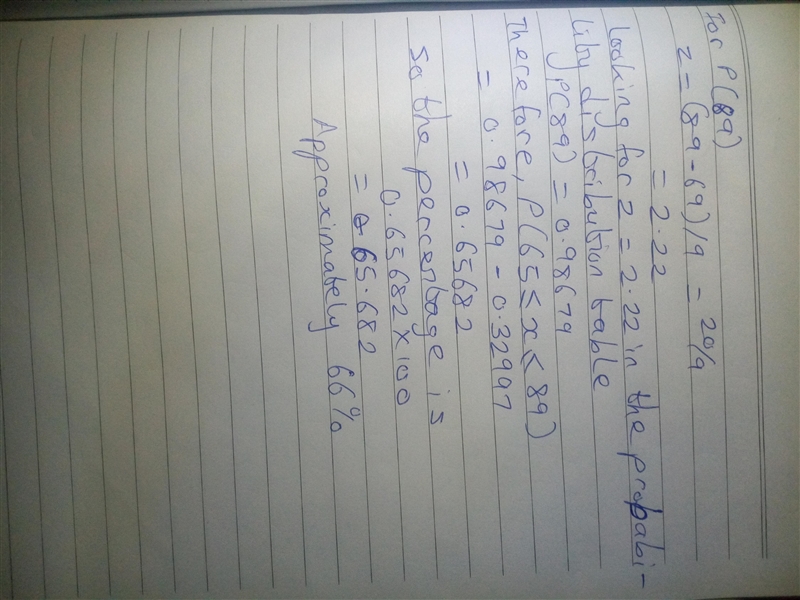 For P(89)
z = (89-69)/9 = 20/9
= 2.22
Looking for z = 2.22 in the probabi-
lity distribution table
P(89) = 0.98679
Therefore, P(65 ≤ x < 89)
= 0.98679 - 0.32997
= 0.65682
So the percentage is
0.65682 x 100
= 65.682
Approximately 66%